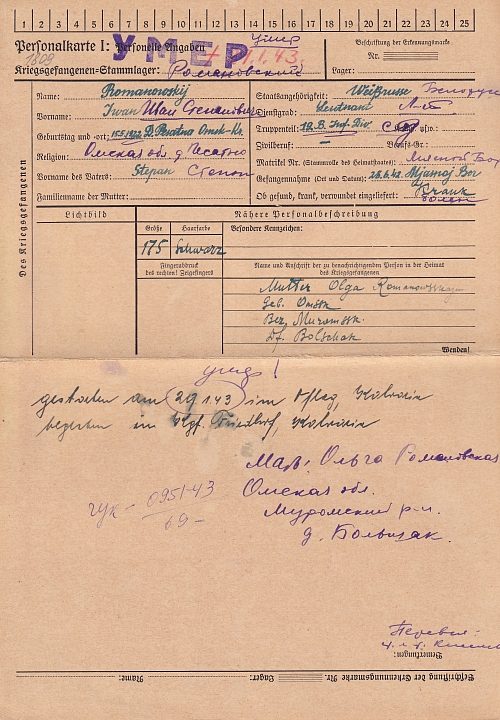 1 2 3 4 5 6 7 8 9 10 11 12 13 14 15 16 17 18 19 20 21 22 23 24 25
Personalkarte I: Personelle Angaben
УМЕР
умер
1.43.
Beschriftung der Erkennungsmarke
Nr.
Kriegsgefangenen-Stammlager: Романовский
Lager:
Des Kriegsgefangenen
Name: Romanowskij
Vorname: Iwan Иван Степанович
Geburtstag und -ort: Omsk
Religion: Омская обл. д.
Vorname des Vaters: Stepan Степан
Familienname der Mutter:
Staatsangehörigkeit: Weißrusse Белорус
Dienstgrad: Leutnant Л-т
Truppenteil: 12. B. Inf. Div.
Zivilberuf: –
Berufs-Gr.:
Matrikel Nr. (Stammrolle des Heimatstaates): Мясной Бор
Gefangennahme (Ort und Datum): 25.6.42. Mjasnoj Bor
Ob gesund, krank, verwundet eingeliefert: Krank
болен
Lichtbild
Nähere Personalbeschreibung
Größe
Haarfarbe
Besondere Kennzeichen:
175 Schwarz
Fingerabdruck
des rechten! Zeigefingers
Name und Anschrift der zu benachrichtigenden Person in der Heimat
des Kriegsgefangenen
Mutter Olga Romanowskaja
Geb. Omsk
Bez. Muromsk.
Df. Bolschak
Wenden!
умер!
gestorben am 29.1.43 im Kalvaria
im Kgf. Friedhof, Kalvaria
Мать: Ольга Романовская
Омская обл.
Муромский р-н.
д. Большак.
0951-43
69-
Перевел:
Bemerkungen:
Beschriftung der Erkennungsmarke Nr.
Lager:
Name: